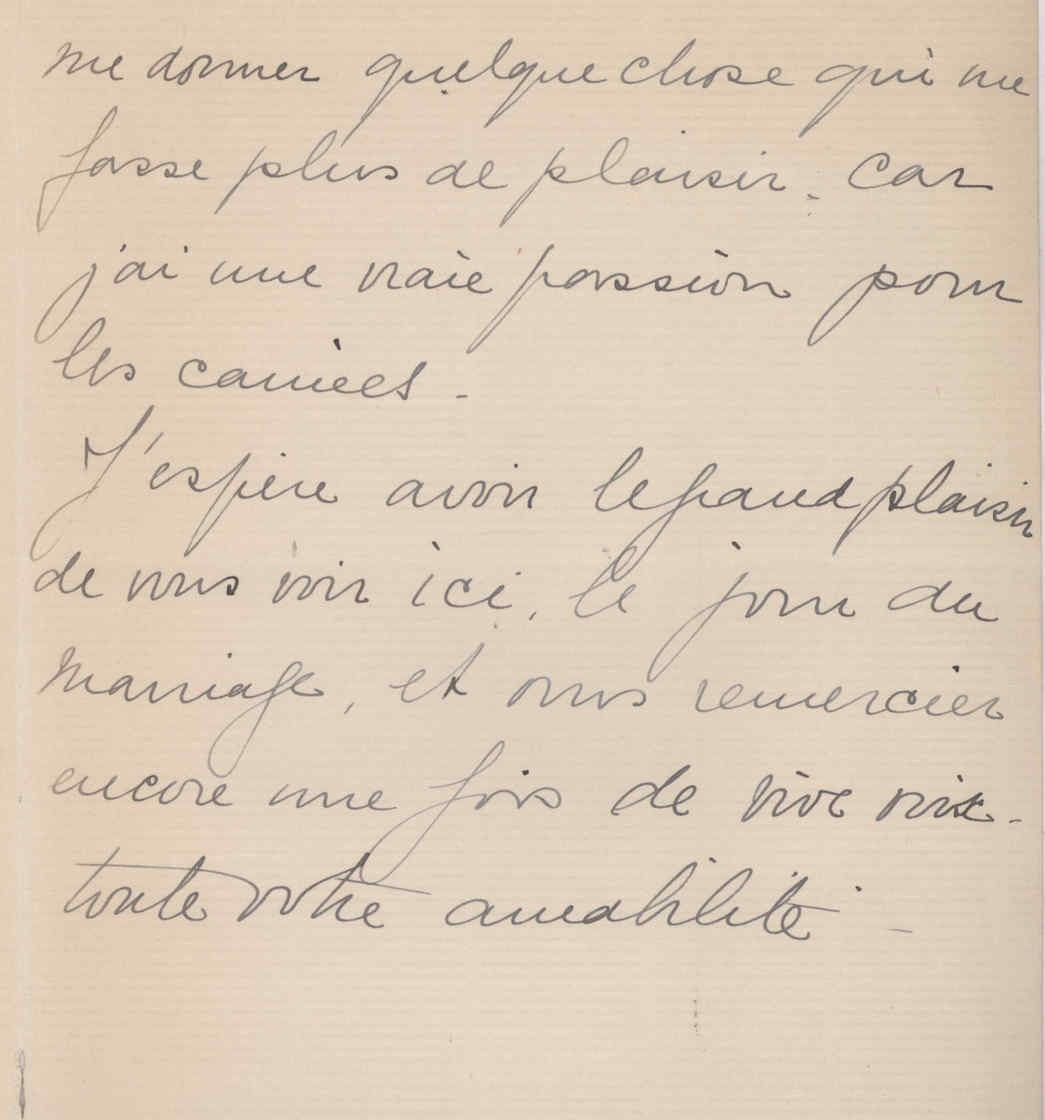 me donner quelque chose qui me
fasse plus de plaisir. Car
j'ai une vraie passion pour
les camées -
J'espère avoir le grand plaisir
de vous voir ici, le jour du
mariage, et vous remercier
encore une fois de vive voix -
toute votre amabilité -